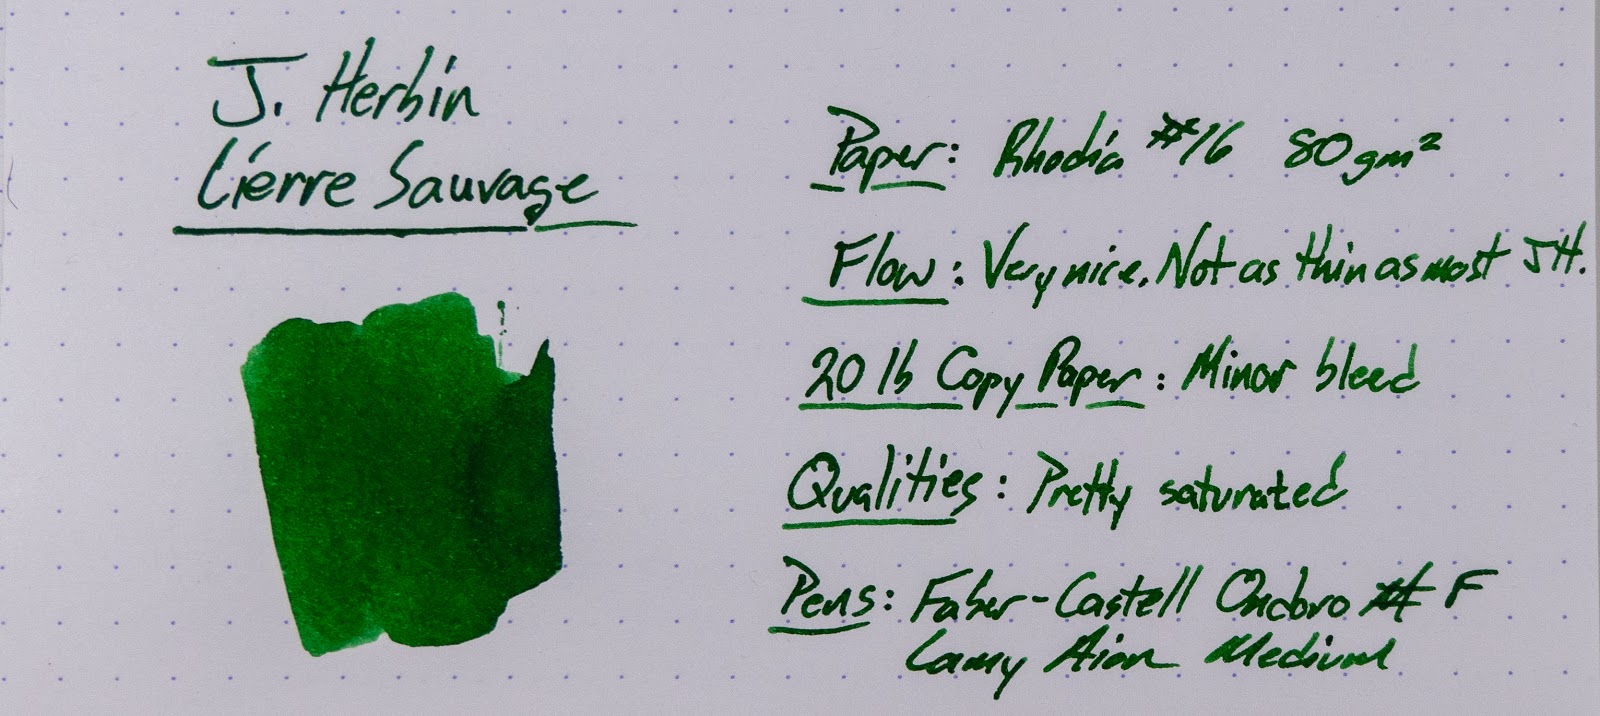 J. Herbin
Lierre Sauvage
Paper: Rhodia #16 80gm²
Flow: Very nice. Not as thin as most JH.
20 lb Copy Paper: Minor bleed
Qualities: Pretty saturated
Pens: Faber-Castell Ondoro F
Lamy Aion Medium